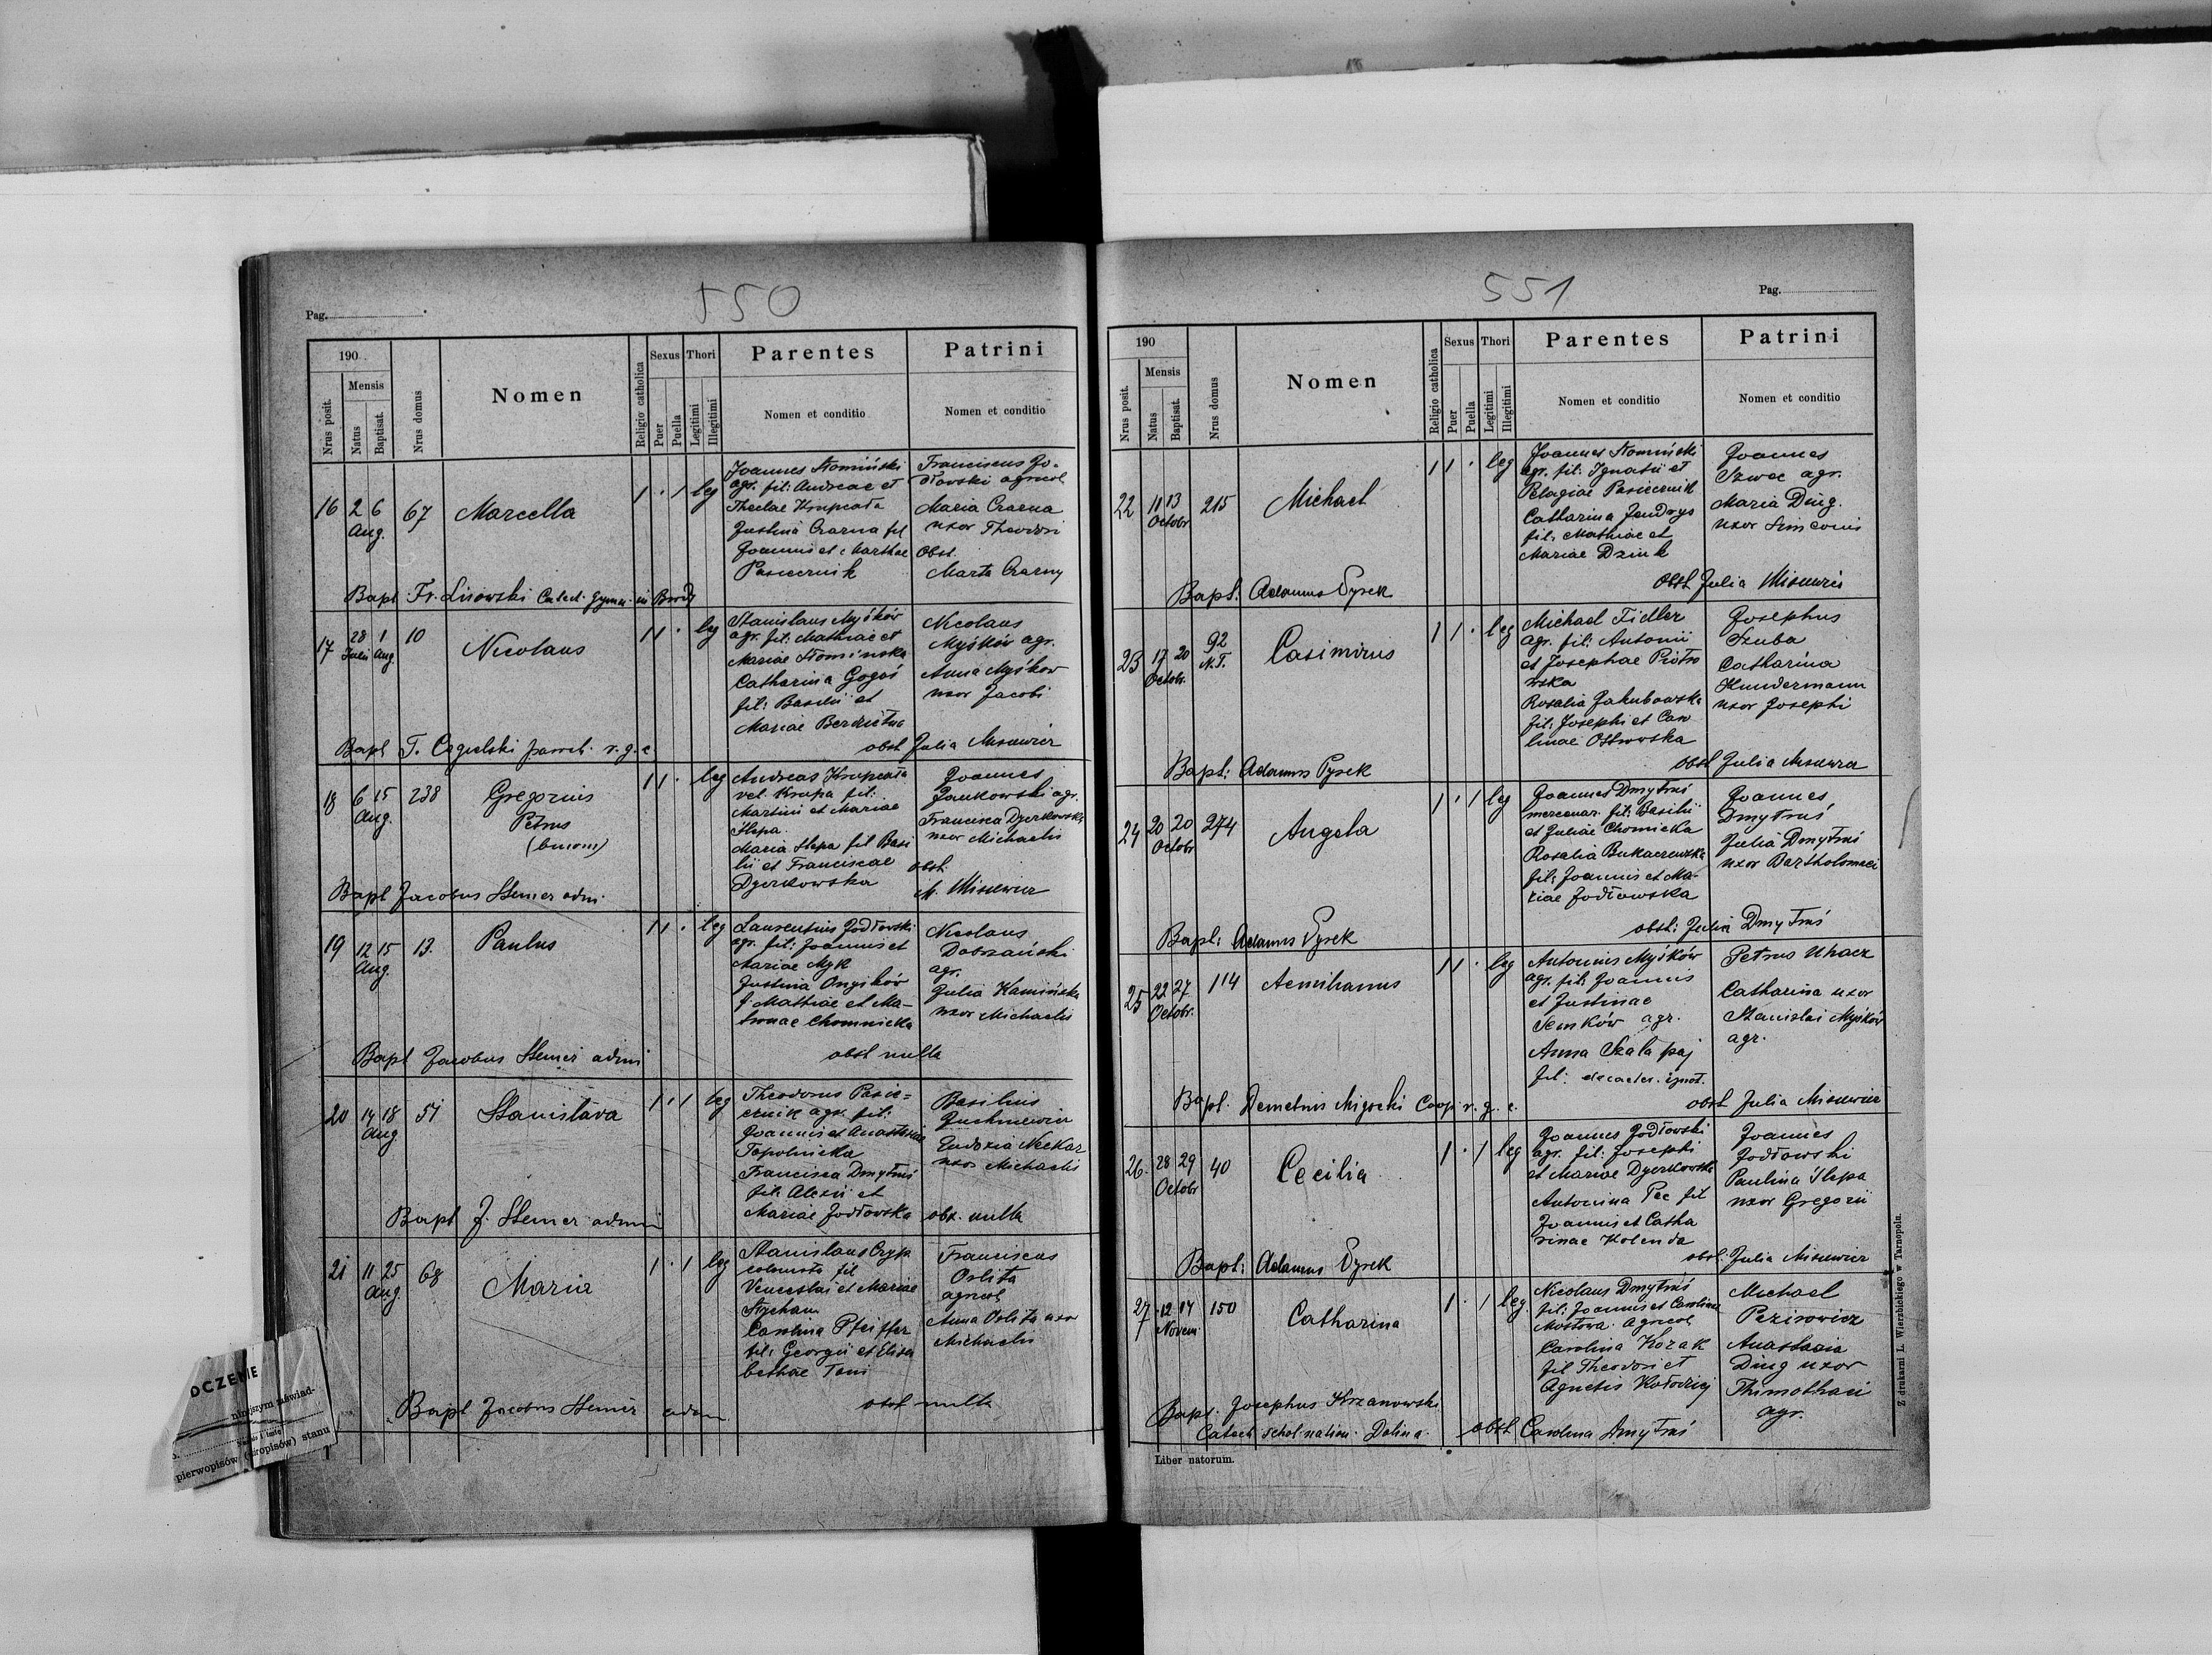 550
Pag.
190
Sexus
Thori
Parentes
Patrini
Mensis
Nrus posit.
Natus
Baptisat.
Nrus domus
Nomen
Religio catholica
Puer
Puella
Legitimi
Illegitimi
Nomen et conditio
Nomen et conditio
16
2 6
Aug.
67
Marcella
1 . 1 leg
Joannes Słomiński
agr. fil: Andreae et
Theclae Krupcała
Justina Czarna fil
Joannis et Marthae
Pasiecznik
Franciscus Jo-
dłowski agricol
Maria Czarna
uxor Theodori
Obst.
Marta Czarny
Bapt. Fr. Lisowski Catech. Gymn. in
17
28 1
Julii Aug.
10
Nicolaus
1 1 . leg
Stanislaus Myśków
agr. fil: Mathiae et
Mariae Słomińska
Catharina Gogoś
fil: Basilii et
Mariae
Nicolaus
Myśków agr.
Anna Myśkow
uxor Jacobi
Bapt T. Cegielski paroch. r. g. c.
obst Julia Misiewicz
18
6 15
Aug.
238
Gregorius
Petrus
(binom)
1 1 . leg
Andreas Krupcała
vel Krupa fil:
Martini et Mariae
Slepa.
Maria Slepa fil Basi
lii et Franciscae
Dyczkowska
Joannes
Jankowski agr.
Francisca Dyczkowska
uxor Michaelis
obst.
M. Misiewicz
Bapt Jacobus Slemer adm.
19
12 15
Aug.
13.
Paulus
1 1 . leg
Laurentius Jodłowski
agr. fil: Joannis et
Mariae Myk
Justina Onysków
f. Mathiae et Ma-
tronae Chomnicka
Nicolaus
Dobrzański
agr.
Julia Kamińska
uxor Michaelis
Bapt Jacobus Slemer admi
obst nulla
20
14 18
Aug
51
Stanislava
1 . 1 leg
Theodorus Pasie=
cznik agr. fil:
Joannis et Anastasiae
Topolnicka
Francisca Dmytruś
fil: Alexii et
Mariae Jodłowska
Basilius
Juchniewicz
Eudoxia Neckar
uxor Michaelis
Bapt J. Slemer admi
obst. nulla
21
11 25
Aug.
68
Maria
1 . 1 leg
Stanislaus Czyż
fil
Venceslai et Mariae
Carolina Pfeiffer
fil: Georgii et Elisa
bethae Toni
Franciscus
Oslita
agricol
Anna Oslita uxor
Michaelis
Bapt Jacobus Slemer adm.
obst nulla
OCZENIE
niniejszym zaświad-
Nazwis i imię
pierwopisów (odpisów) stanu
551
Pag.
190
Sexus
Thori
Parentes
Patrini
Mensis
Nrus posit.
Natus
Baptisat.
Nrus domus
Nomen
Religio catholica
Puer
Puella
Legitimi
Illegitimi
Nomen et conditio
Nomen et conditio
22
11 13
Octobr
215
Michael
1 1 . leg
Joannes Słomiński
agr. fil: Ignatii et
Pelagiae Pasiecznik
Catharina Jendrys
fil: Mathiae et
Mariae Dziuk
Joannes
Szwec agr.
Maria Ding.
uxor Simeonis
Bapt: Adamus Pysek
Obst Julia Misiewicz
23
17 20
Octobr.
92
N.T.
Casimirus
1 1 . leg
Michael Fidler
agr. fil: Antonii
et Josephae Piotro
wska
Rosalia Jakubowska
fil: Josephi et Caro
linae Ostrowska
Josephus
Szuba
Catharina
Kundermann
uxor Josephi
Bapt: Adamus Pysek
obst Julia Misiewicz
24
20 20
Octobr
274
Angela
1 . 1 leg
Joannes Dmytruś
mercenar. fil: Basilii
et Juliae Chomicka
Rosalia Bukaczewska
fil: Joannis et Ma-
riae Jodłowska
Joannes
Dmytruś
Julia Dmytruś
uxor Bartholomaei
Bapt: Adamus Pysek
obst: Julia Dmytruś
25
22 27
Octobr.
114
Aemilianus
1 1 . leg
Antonius Myśków
agr. fil: Joannis
et Justinae
Semków agr.
Anna Szałapaj
fil: de caeter. ignot.
Petrus Uhacz
Catharina uxor
Stanislai Myśków
agr.
Bapt. Demetrius Migocki Coop. r. g. c.
obst Julia Misiewicz
26.
28 29
Octobr
40
Cecilia
1 . 1 leg
Joannes Jodłowski
agr. fil: Josephi
et Mariae Dyczkowska
Antonina Pec fil
Joannis et Catha
rinae Kolenda
Joannes
Jodłowski
Paulina Slepa
uxor Gregorii
Bapt: Adamus Pysek
obst: Julia Misiewicz
27
12 14
Novem.
150
Catharina
1 . 1 leg.
Nicolaus Dmytruś
fil: Joannis et Carolina
Mostowa. Agricol
Carolina Kozak
fil Theodori et
Agnetis Kołodziej
Michael
Pezirowicz
Anastasia
Ding uxor
Thimothaei
agr.
Bapt. Josephus Krzanowski
Catech schol. nation. Dolina.
obst Carolina Dmytruś
Liber natorum.
Z drukarni L. Wierzbickiego w Tarnopolu.